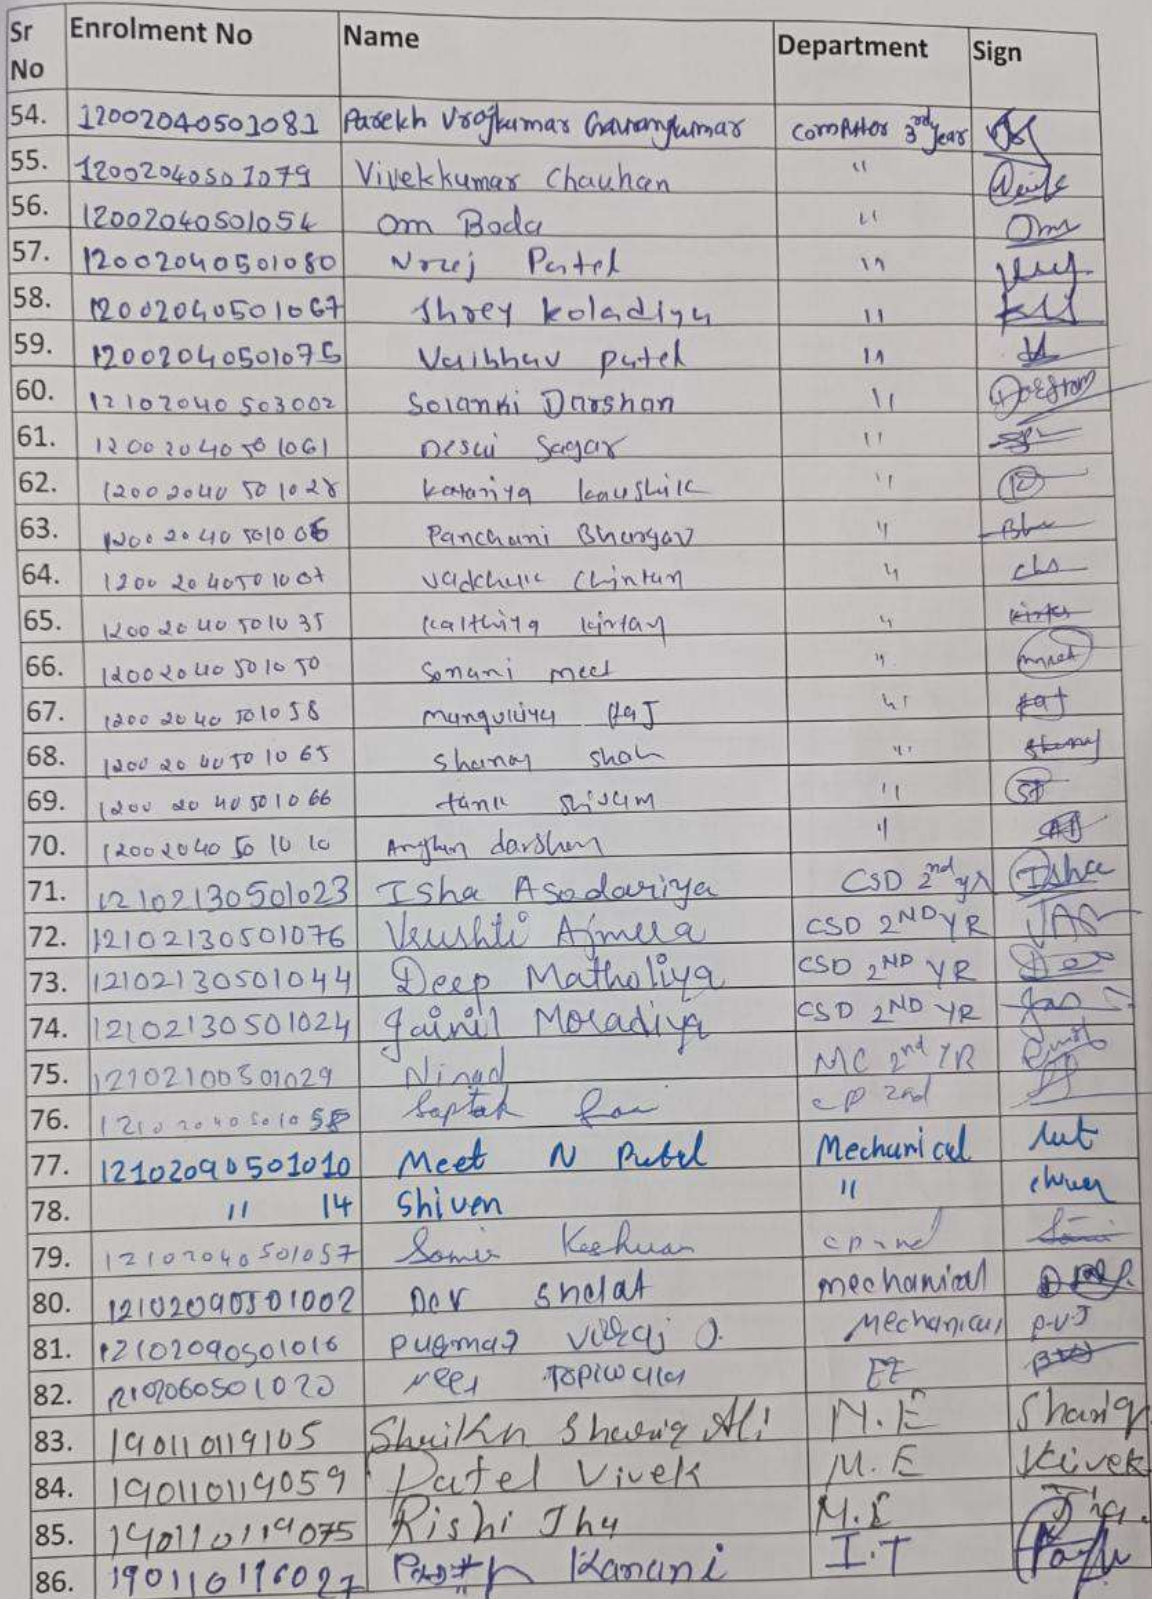 Sr No Enrolment No Name Department Sign
54. 12002040501081 Parekh Vrajkumar computer 3rd year
55. 12002040501079 Vivekkumar Chauhan "
56. 12002040501054 Om Boda " Om
57. 12002040501080 Patel "
58. 12002040501067 Shrey koladiya "
59. 12002040501075 Vaibhav patel "
60. 12102040503002 Solanki Darshan "
61. 12002040501061 Desai Sagar "
62. 12002040501028 katariya kaushik "
63. 12002040501006 Panchani Bhargav "
64. 12002040501007 Chintan "
65. 12002040501035 kalthiya kirtan "
66. 12002040501050 Sonani meet " meet
67. 12002040501058 Mangukiya Raj " Raj
68. 12002040501065 Shanay Shah "
69. 12002040501066 tank Shivam "
70. 12002040501010 darshan "
71. 12102130501023 Isha Asodariya CSD 2nd yr Isha
72. 12102130501076 Vrushti Ajmera CSD 2ND YR
73. 12102130501044 Deep Matholiya CSD 2ND YR
74. 12102130501024 Jainil Moradiya CSD 2ND YR
75. 12102100501029 Ninad MC 2nd YR
76. 12102040501058 Saptak cp 2nd
77. 12102090501010 Meet N Patel Mechanical
78. " 14 Shiven "
79. 12102040501057 Samir
80. 12102090501002 Dev Shelat mechanical
81. 12102090501016 Mechanical P.V.J
82. Topiwala EE
83. 190110119105 Shaikh Shariq Ali M.E Shariq
84. 190110119059 Patel Vivek M.E Vivek
85. 190110119075 Rishi Jha M.E
86. Kanani I.T